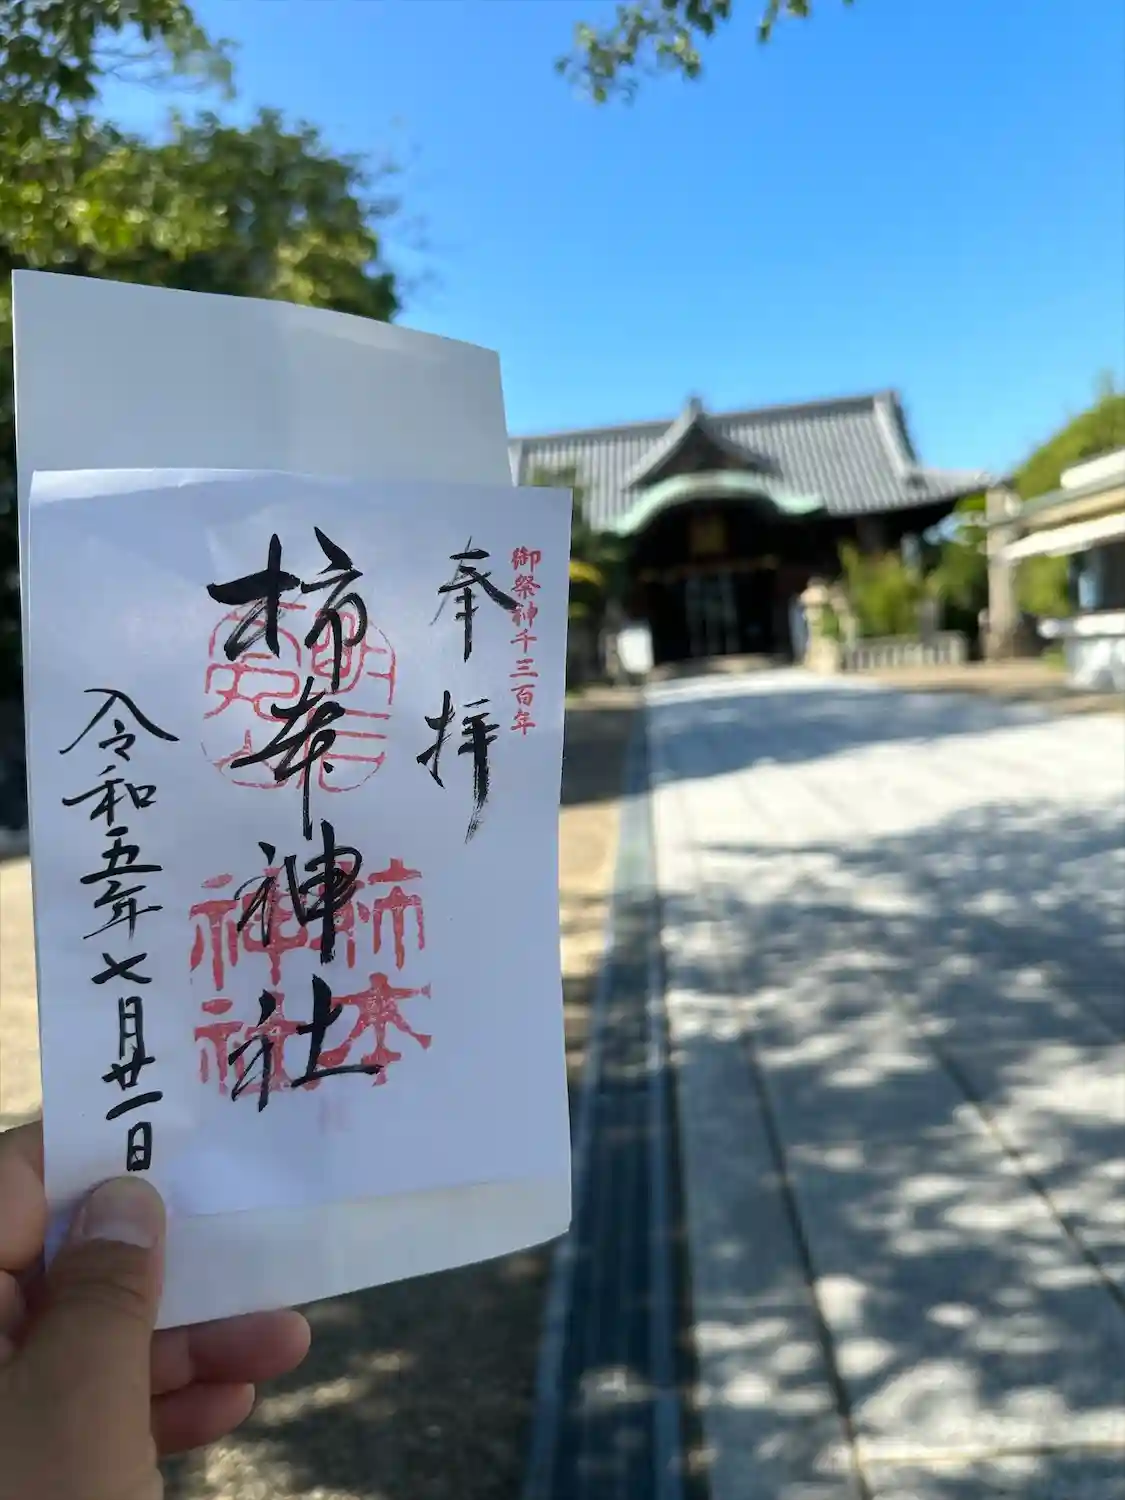 御祭神千三百年
奉拝
柿本神社
柿本
神社
令和五年七月廿一日